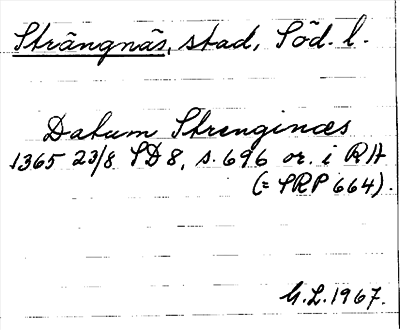 Strängnäs, stad, Söd. l.
Datum Strenginæs
1365 23/8 SD 8, s. 696 or. i RA
(= SRP 664).
G.L. 1967.